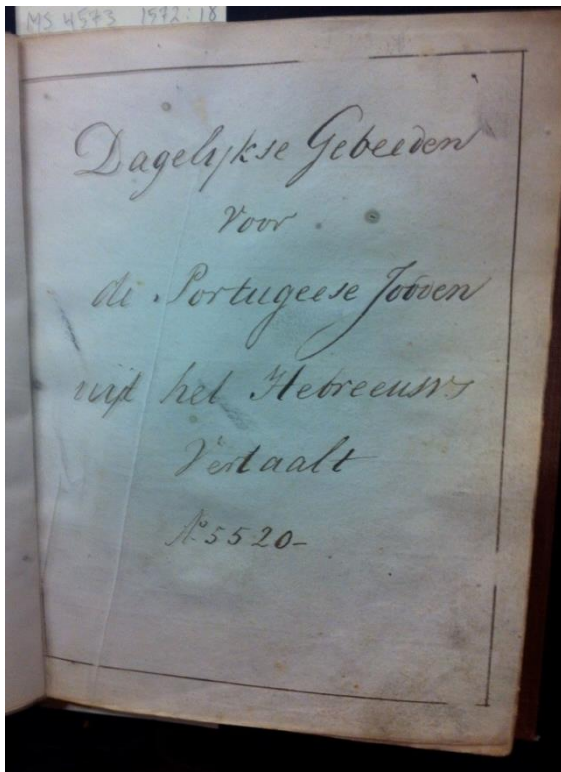 MS 4573 1572:18
Dagelykse Gebeeden
voor
de Portugeese Jooden
uyt het Hebreeuws
Vertaalt
Aº 5520-